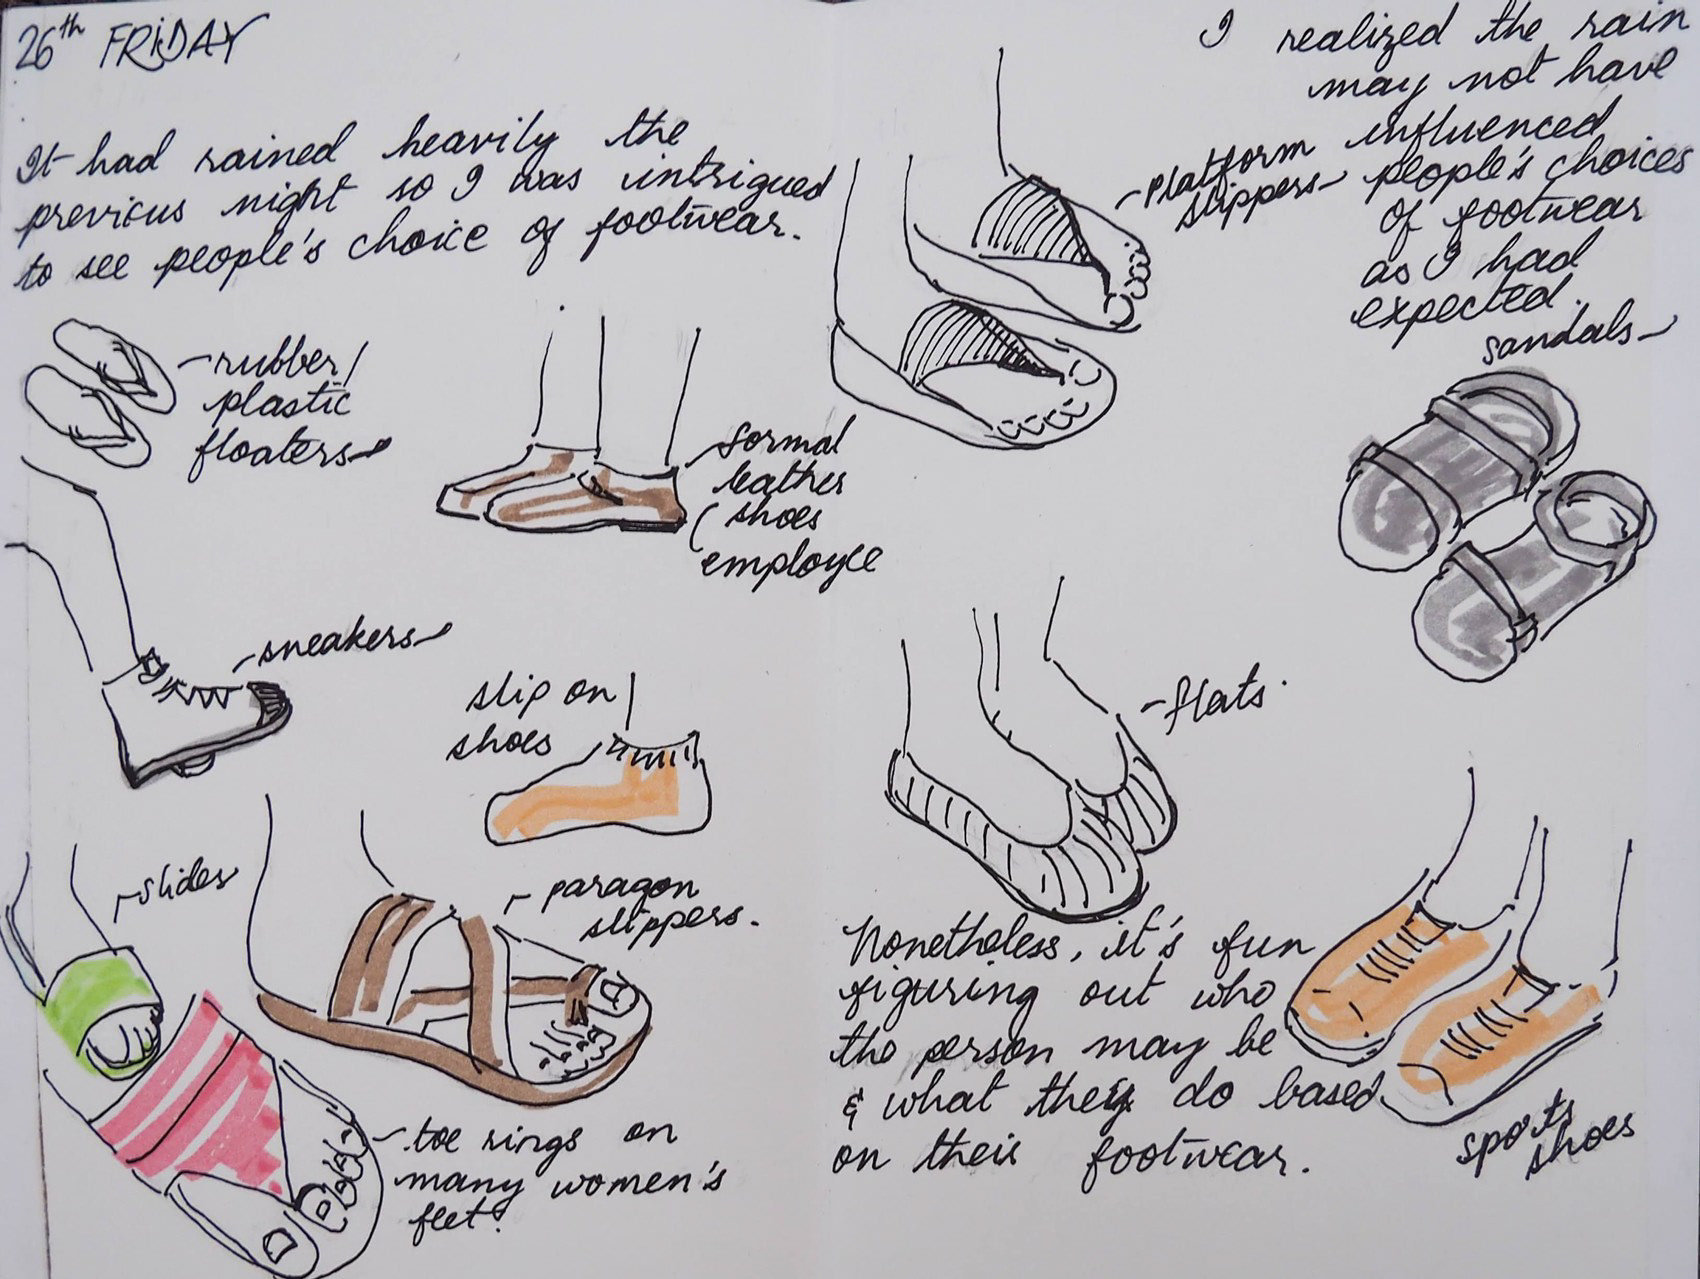 26th FRiDAY
It had rained heavily the
previous night so I was intrigued
to see people's choice of footwear.
rubber/
plastic
floaters
formal
leather
shoes
employee
sneakers
slip on
shoes
slides
paragon
slippers.
toe rings on
many women's
feet.
I realized the rain
may not have
influenced
people's choices
of footwear
as I had
expected.
platform
slippers
sandals
flats.
Nonetheless, it's fun
figuring out who
the person may be
& what they do based
on their footwear.
sports
shoes